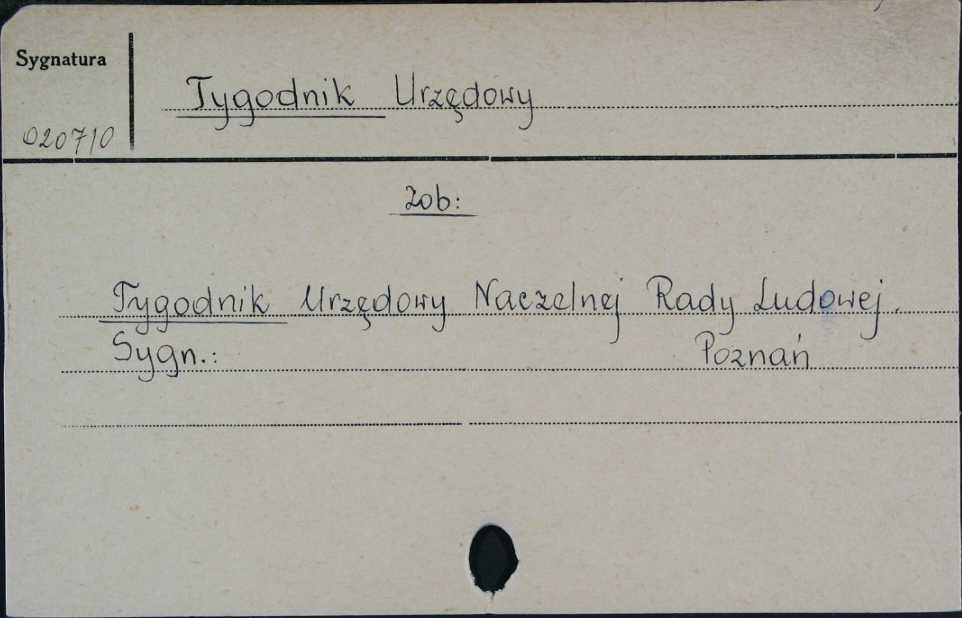 Sygnatura
Tygodnik Urzędowy
020710
Zob:
Tygodnik Urzędowy Naczelnej Rady Ludowej.
Sygn.: Poznań